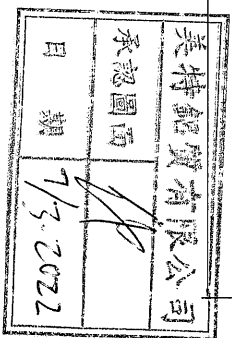 美特鋁質有限公司
承認圖面
日期 7/3.2022